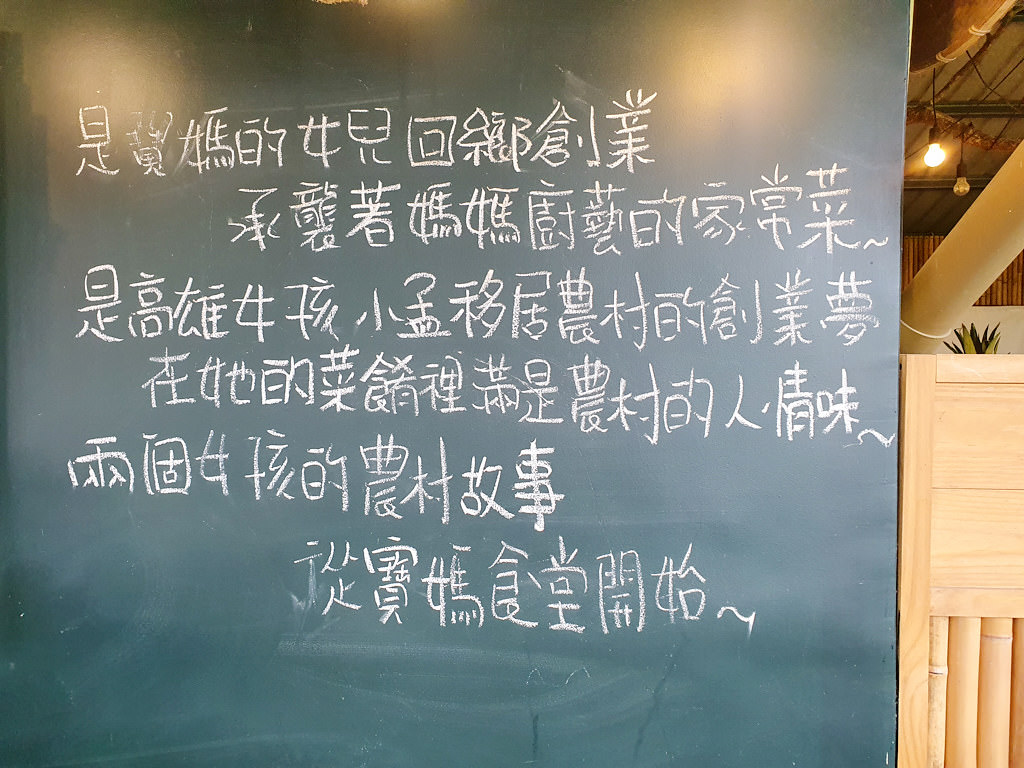 是寶媽的女兒回鄉創業
承襲著媽媽廚藝的家常菜~
是高雄女孩小孟移居農村的創業夢
在她的菜餚裡滿是農村的人情味~
兩個女孩的農村故事
從寶媽食堂開始~